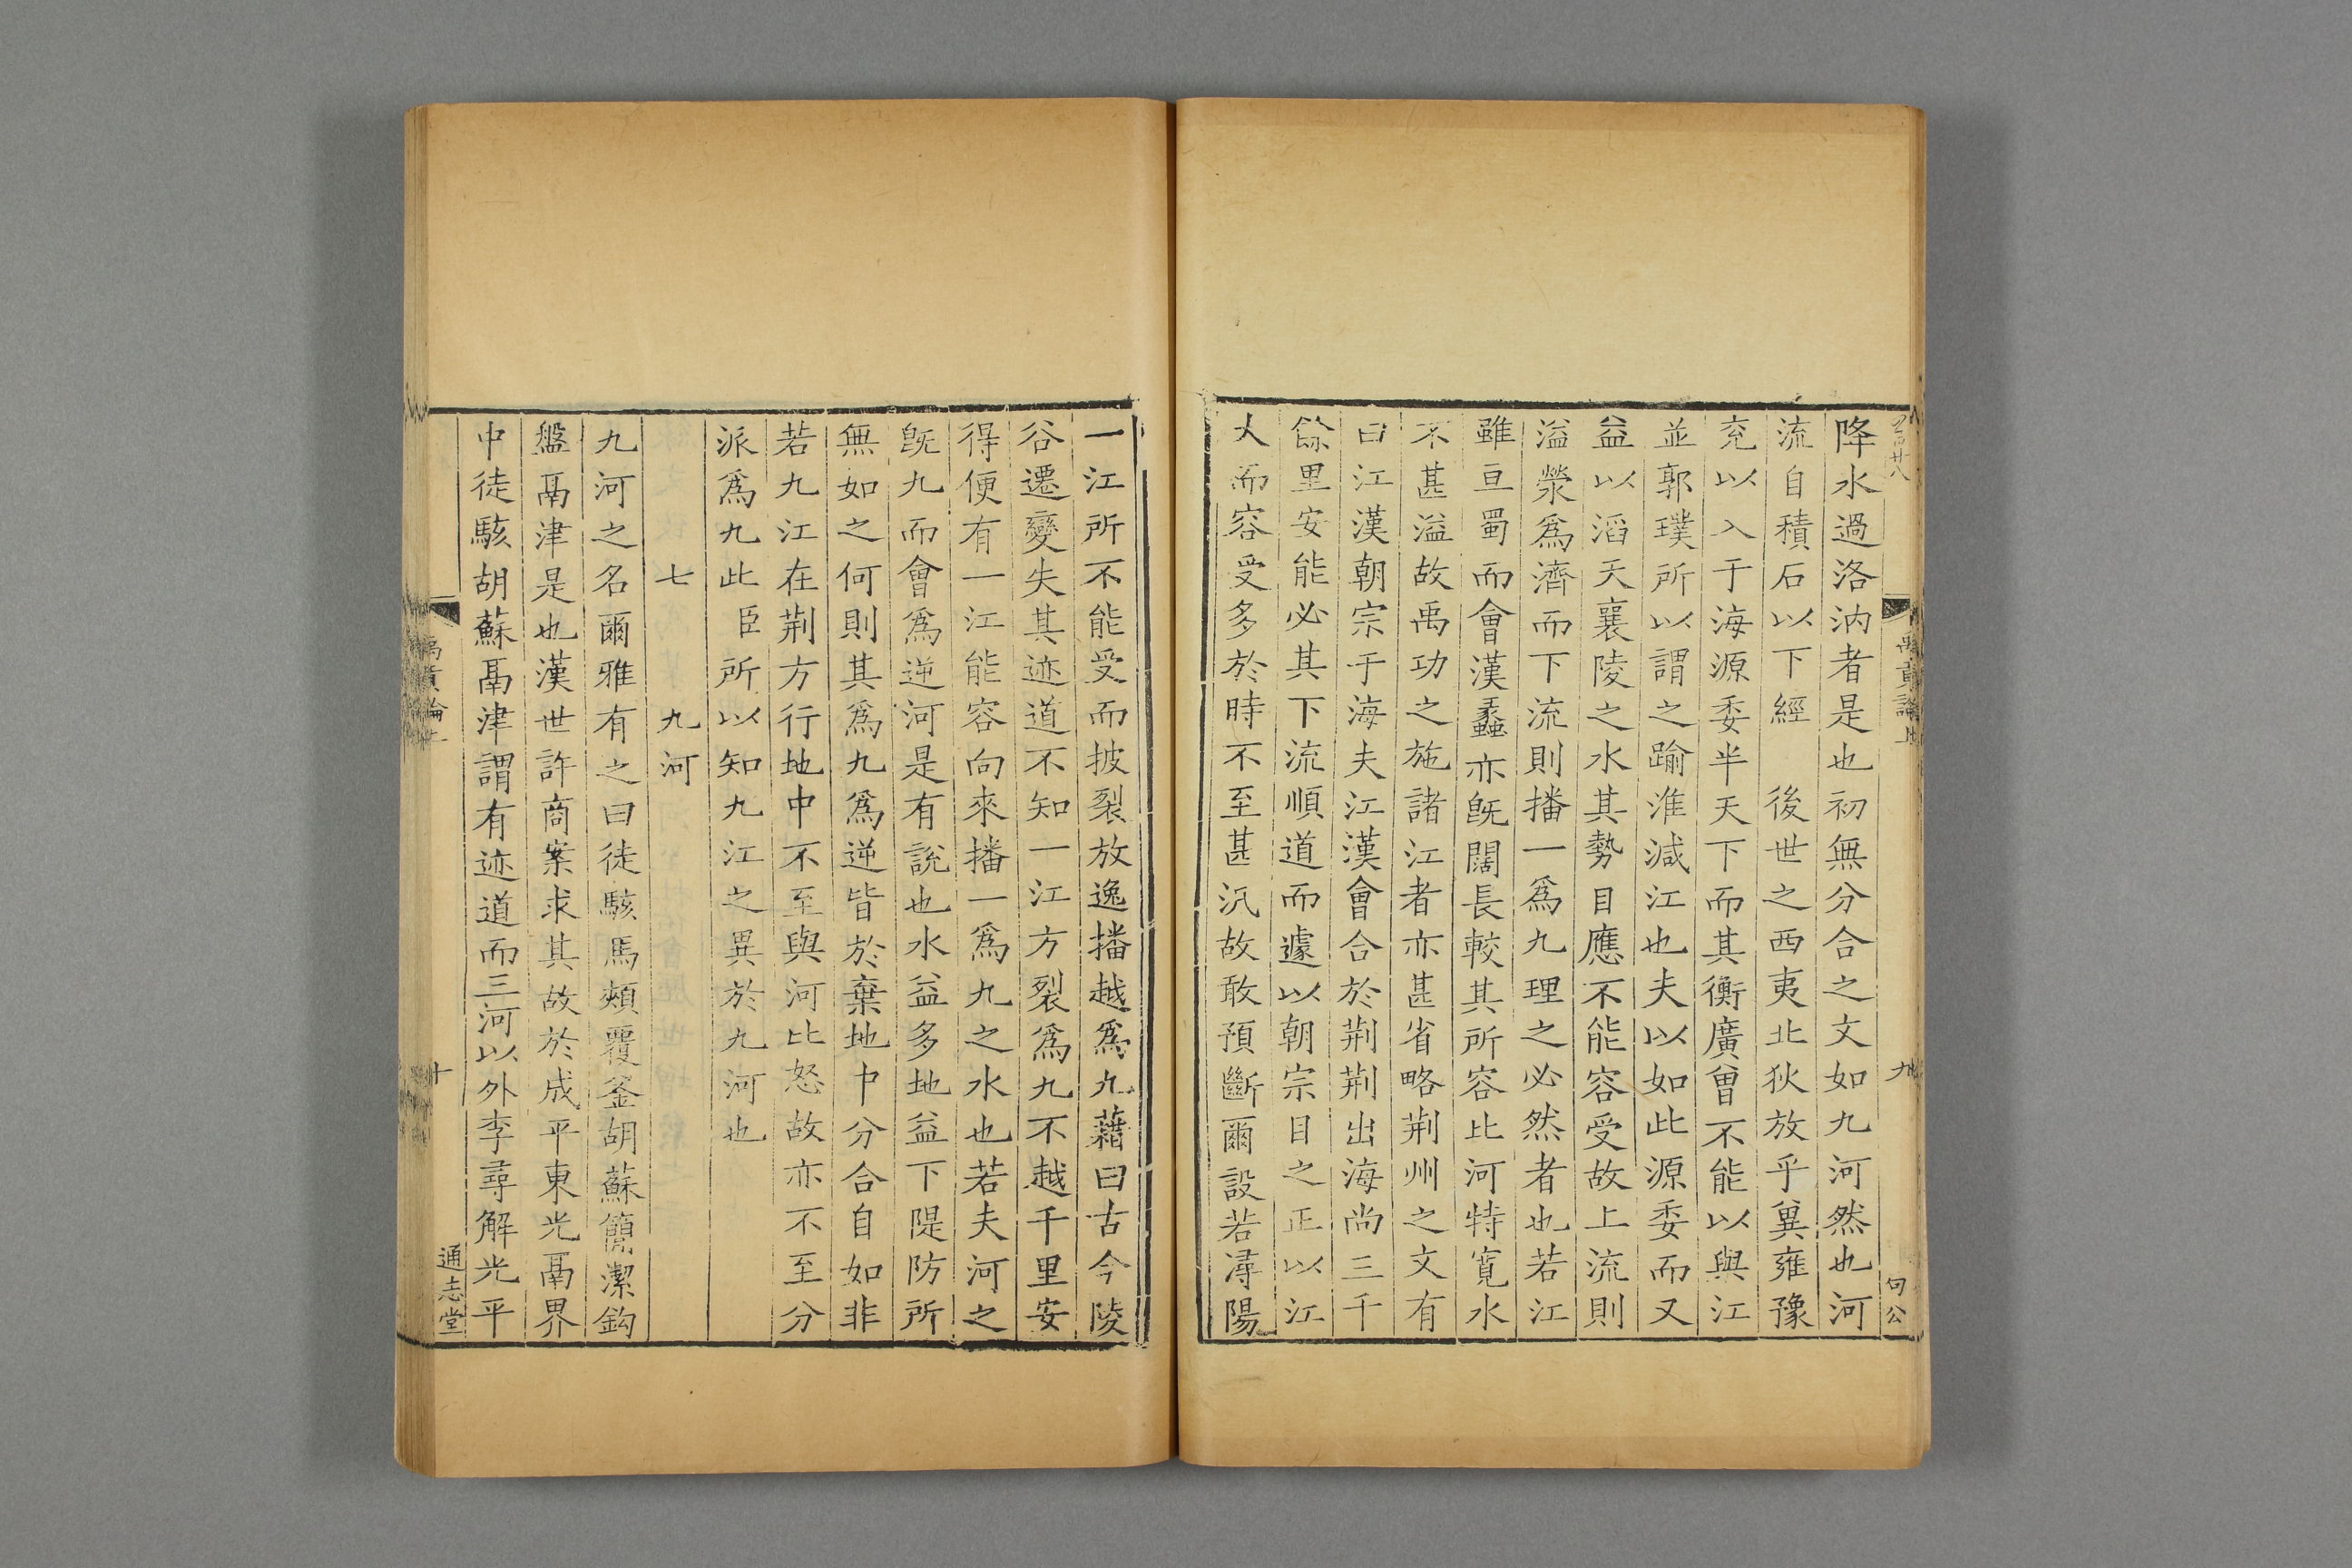 降水過洛汭者是也初無分合之文如九河然也河
流自積石以下經　後世之西夷北狄放乎兾雍豫
兖以入于海源委半天下而其衡廣曾不能以與江
並郭璞所以謂之踰淮減江也夫以如此源委而又
益以滔天襄陵之水其勢目應不能容受故上流則
溢滎爲濟而下流則播一爲九理之必然者也若江
雖亘蜀而會漢蠡亦旣闊長較其所容比河特寛水
不甚溢故禹功之施諸江者亦甚省略荆州之文有
曰江漢朝宗于海夫江漢會合於荆荆出海尚三千
餘里安能必其下流順道而遽以朝宗目之正以江
大而容受多於時不至甚汎故敢預斷爾設若潯陽
禹貢論上
九
句公
一江所不能受而披裂放逸播越爲九藉曰古今陵
谷遷變失其迹道不知一江方裂爲九不越千里安
得便有一江能容向來播一爲九之水也若夫河之
旣九而會爲逆河是有說也水益多地益下隄防所
無如之何則其爲九爲逆皆於棄地中分合自如非
若九江在荆方行地中不至與河比怒故亦不至分
派爲九此臣所以知九江之異於九河也
七　九河
九河之名爾雅有之曰徒駭馬頰覆釜胡蘇簡潔鈎
盤鬲津是也漢世許商案求其故於成平東光鬲界
中徒駭胡蘇鬲津謂有迹道而三河以外李尋解光平
禹貢論上
十
通志堂